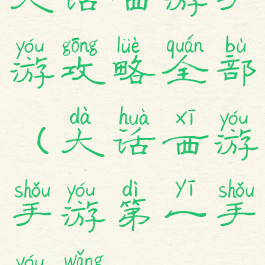 大话西游手
yóu gōng lüè quán bù
游攻略全部
dà huà xī yóu
(大话西游
shǒu yóu dì yī shǒu
手游第一手
yóu wǎng